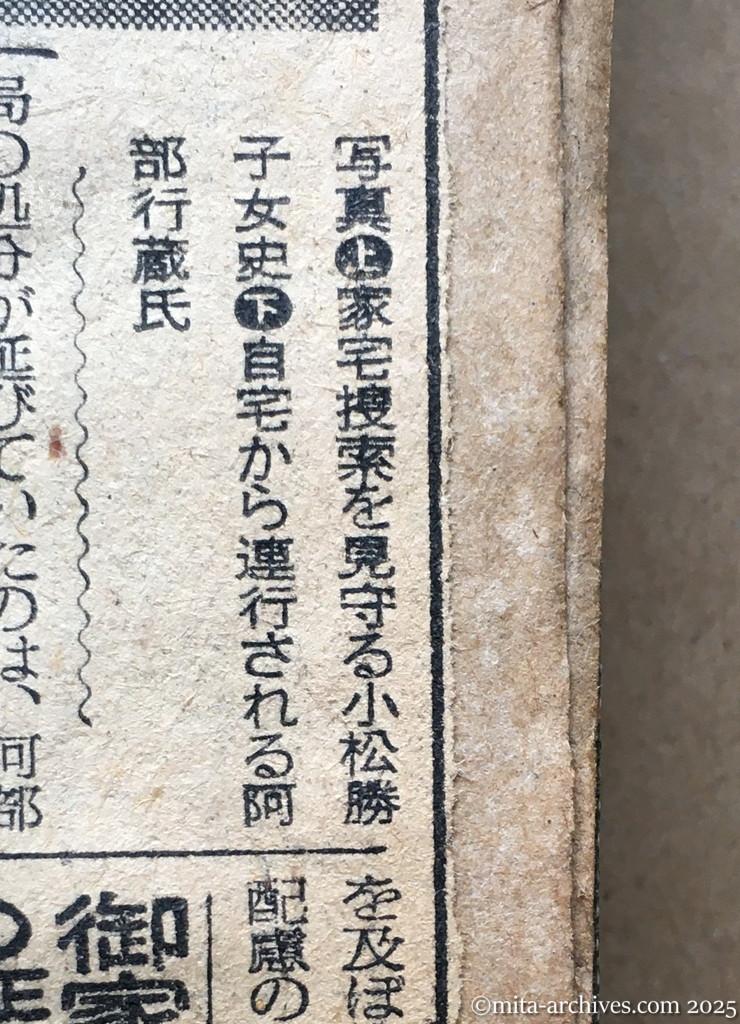 ［写真上家宅捜索を見守る小松勝
子女史下自宅から連行される阿
部行蔵氏
局の処分が延びていたのは、阿部
を及ぼ
配慮の
御家
©mita-archives.com 2025